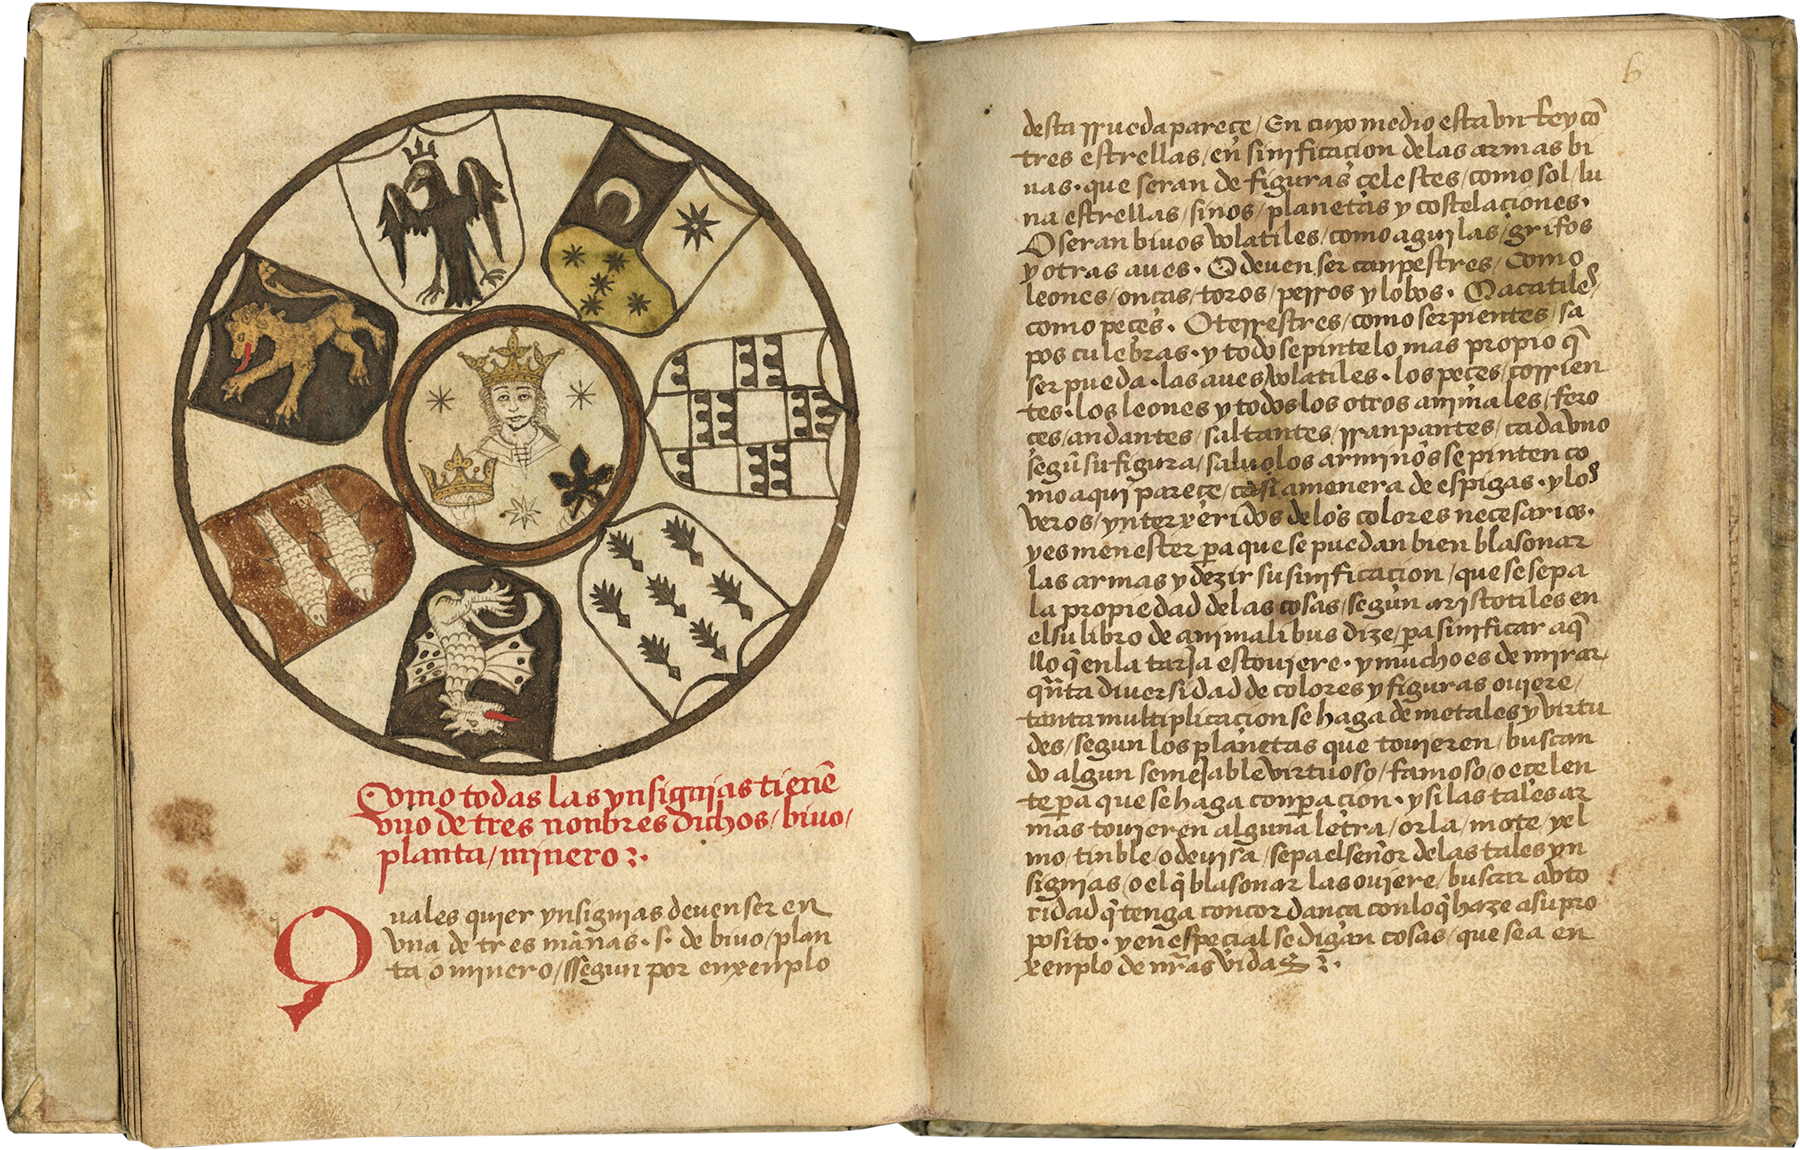 Como todas las ynsignias tienē
vno de tres nonbres dichos / biuo /
planta / minero
Quales quier ynsignias deuen ser en
vna de tres mānas · s · de biuo / plan
ta o minero / ssegun por enxenplo
6
desta rrueda pareçe / En cuyo medio esta vn Rey cō
tres estrellas / en sinificaçion de las armas bi
uas · que seran de figuras çelestes / como sol / lu
na estrellas / sinos / planetas y costelaçiones ·
O seran biuos volatiles / como aguilas / grifos
y otras aues · O deuen ser canpestres / Como
leones / onças / toros / perros y lobos · O acatiles /
como peçes · O terrestres / como serpientes / sa
pos culebras · y todo se pinte lo mas propio q̄
ser pueda · las aues volatiles · los peçes / corrien
tes · los leones y todos los otros animales / fero
çes / andantes / saltantes / rranpantes / cada vno
segū su figura / saluo los arminos se pinten co
mo aqui pareçe / casi a menera de espigas · y los
veros / ynterxeridos de los colores neçesarios ·
y es menester p̄a que se puedan bien blasonar
las armas y dezir su sinificaçion / que se sepa
la propiedad de las cosas / segun aristotiles en
el su libro de animalibus dize / p̄a sinificar aq̄
llo q̄ en la tarja estouiere · y mucho es de mirar /
qūta diuersidad de colores y figuras ouiere /
tanta multiplicaçion se haga de metales y virtu
des / segun los planetas que touieren / buscan
do algun semejable virtuoso / famoso / o eçelen
te p̄a que se haga conp̄açion · y si las tales ar
mas touieren alguna letra / orla / mote / yel
mo / tinble / o deuisa / sepa el señor de las tales yn
signias / o el q̄ blasonar las ouiere / buscar abto
ridad q̄ tenga concordança con lo q̄ haze a su pro
posito · y en espeçial se digan cosas / que sea en
xenplo de nr̄as vidas